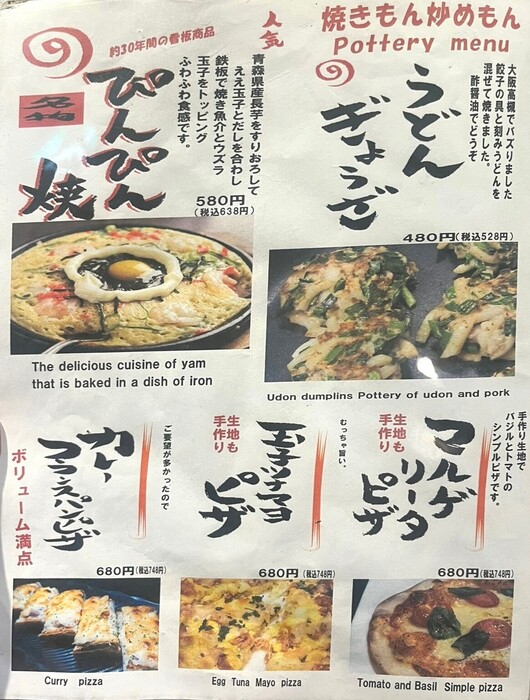 焼きもん炒めもん
Pottery menu
大阪高槻でバズりました
餃子の具と刻みうどんを
混ぜて焼きました。
酢醤油でどうぞ
うどん
ぎょうざ
480円(税込528円)
Udon dumplins Pottery of udon and pork
人気
約30年間の看板商品
名物
ぴんぴん
焼
青森県産長芋をすりおろして
ええ玉子とだしを合わし
鉄板で焼き魚介とウズラ
玉子をトッピング
ふわふわ食感です。
580円
(税込638円)
The delicious cuisine of yam
that is baked in a dish of iron
手作り生地で
バジルとトマトの
シンプルピザです。
マルゲ
リータ
ピザ
生地も
手作り
680円(税込748円)
Tomato and Basil Simple pizza
むっちゃ旨い、
玉子ツナマヨ
ピザ
生地も
手作り
680円(税込748円)
Egg Tuna Mayo pizza
ご要望が多かったので
カレー
フランスパンピザ
ボリューム満点
680円(税込748円)
Curry pizza